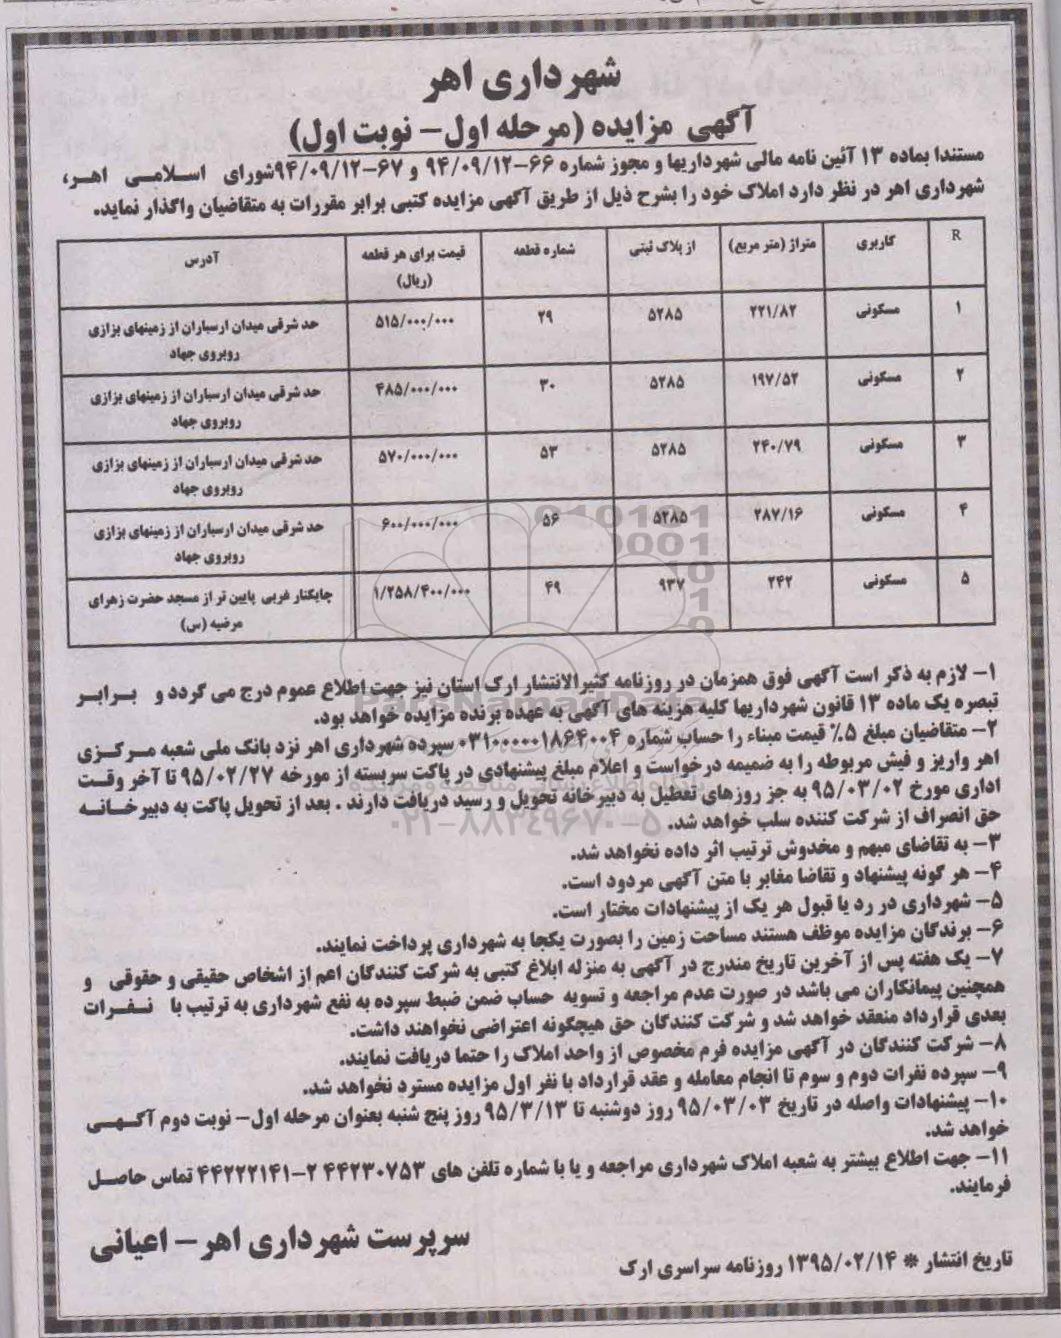 شهرداری اهر
آگهی مزایده (مرحله اول- نوبت اول)
مستندا بماده ۱۳ آئین نامه مالی شهرداریها و مجوز شماره ۶۶-۹۴/۰۹/۱۲ و ۶۷-۹۴/۰۹/۱۲شورای اسلامی اهر،
شهرداری اهر در نظر دارد املاک خود را بشرح ذیل از طریق آگهی مزایده کتبی برابر مقررات به متقاضیان واگذار نماید.
R کاربری متراژ (متر مربع) از پلاک ثبتی شماره قطعه قیمت برای هر قطعه (ریال) آدرس
۱ مسکونی ۲۲۱/۸۲ ۵۲۸۵ ۲۹ ۵۱۵/۰۰۰/۰۰۰ حد شرقی میدان ارسباران از زمینهای بزازی
روبروی جهاد
۲ مسکونی ۱۹۷/۵۲ ۵۲۸۵ ۳۰ ۴۸۵/۰۰۰/۰۰۰ حد شرقی میدان ارسباران از زمینهای بزازی
روبروی جهاد
۳ مسکونی ۲۴۰/۷۹ ۵۲۸۵ ۵۳ ۵۷۰/۰۰۰/۰۰۰ حد شرقی میدان ارسباران از زمینهای بزازی
روبروی جهاد
۴ مسکونی ۲۸۷/۱۶ ۵۲۸۵ ۵۶ ۶۰۰/۰۰۰/۰۰۰ حد شرقی میدان ارسباران از زمینهای بزازی
روبروی جهاد
۵ مسکونی ۲۴۲ ۹۳۷ ۴۹ ۱/۲۵۸/۴۰۰/۰۰۰ چایکنار غربی پایین تر از مسجد حضرت زهرای
مرضیه (س)
۱- لازم به ذکر است آگهی فوق همزمان در روزنامه کثیرالانتشار ارک استان نیز جهت اطلاع عموم درج می گردد و برابر
تبصره یک ماده ۱۳ قانون شهرداریها کلیه هزینه های آگهی به عهده برنده مزایده خواهد بود.
۲- متقاضیان مبلغ ۵٪ قیمت مبناء را حساب شماره ۰۳۱۰۰۰۰۰۱۸۶۴۰۰۴ سپرده شهرداری اهر نزد بانک ملی شعبه مرکزی
اهر واریز و فیش مربوطه را به ضمیمه درخواست و اعلام مبلغ پیشنهادی در پاکت سربسته از مورخه ۹۵/۰۲/۲۷ تا آخر وقت
اداری مورخ ۹۵/۰۳/۰۲ به جز روزهای تعطیل به دبیرخانه تحویل و رسید دریافت دارند . بعد از تحویل پاکت به دبیرخانه
حق انصراف از شرکت کننده سلب خواهد شد.
۳- به تقاضای مبهم و مخدوش ترتیب اثر داده نخواهد شد.
۴- هر گونه پیشنهاد و تقاضا مغایر با متن آگهی مردود است.
۵- شهرداری در رد یا قبول هر یک از پیشنهادات مختار است.
۶- برندگان مزایده موظف هستند مساحت زمین را بصورت یکجا به شهرداری پرداخت نمایند.
۷- یک هفته پس از آخرین تاریخ مندرج در آگهی به منزله ابلاغ کتبی به شرکت کنندگان اعم از اشخاص حقیقی و حقوقی و
همچنین پیمانکاران می باشد در صورت عدم مراجعه و تسویه حساب ضمن ضبط سپرده به نفع شهرداری به ترتیب با نفرات
بعدی قرارداد منعقد خواهد شد و شرکت کنندگان حق هیچگونه اعتراضی نخواهند داشت.
۸- شرکت کنندگان در آگهی مزایده فرم مخصوص از واحد املاک را حتما دریافت نمایند.
۹- سپرده نفرات دوم و سوم تا انجام معامله و عقد قرارداد با نفر اول مزایده مسترد نخواهد شد.
۱۰- پیشنهادات واصله در تاریخ ۹۵/۰۳/۰۳ روز دوشنبه تا ۹۵/۳/۱۳ روز پنج شنبه بعنوان مرحله اول- نوبت دوم آگهی
خواهد شد.
۱۱- جهت اطلاع بیشتر به شعبه املاک شهرداری مراجعه و یا با شماره تلفن های ۴۴۲۳۰۷۵۳ ۲-۴۴۲۲۲۱۴۱ تماس حاصل
فرمایند.
سرپرست شهرداری اهر - اعیانی
تاریخ انتشار * ۱۳۹۵/۰۲/۱۴ روزنامه سراسری ارک
ParsNamadData
۰۲۱-۸۸۳۴۹۶۷۰-۵